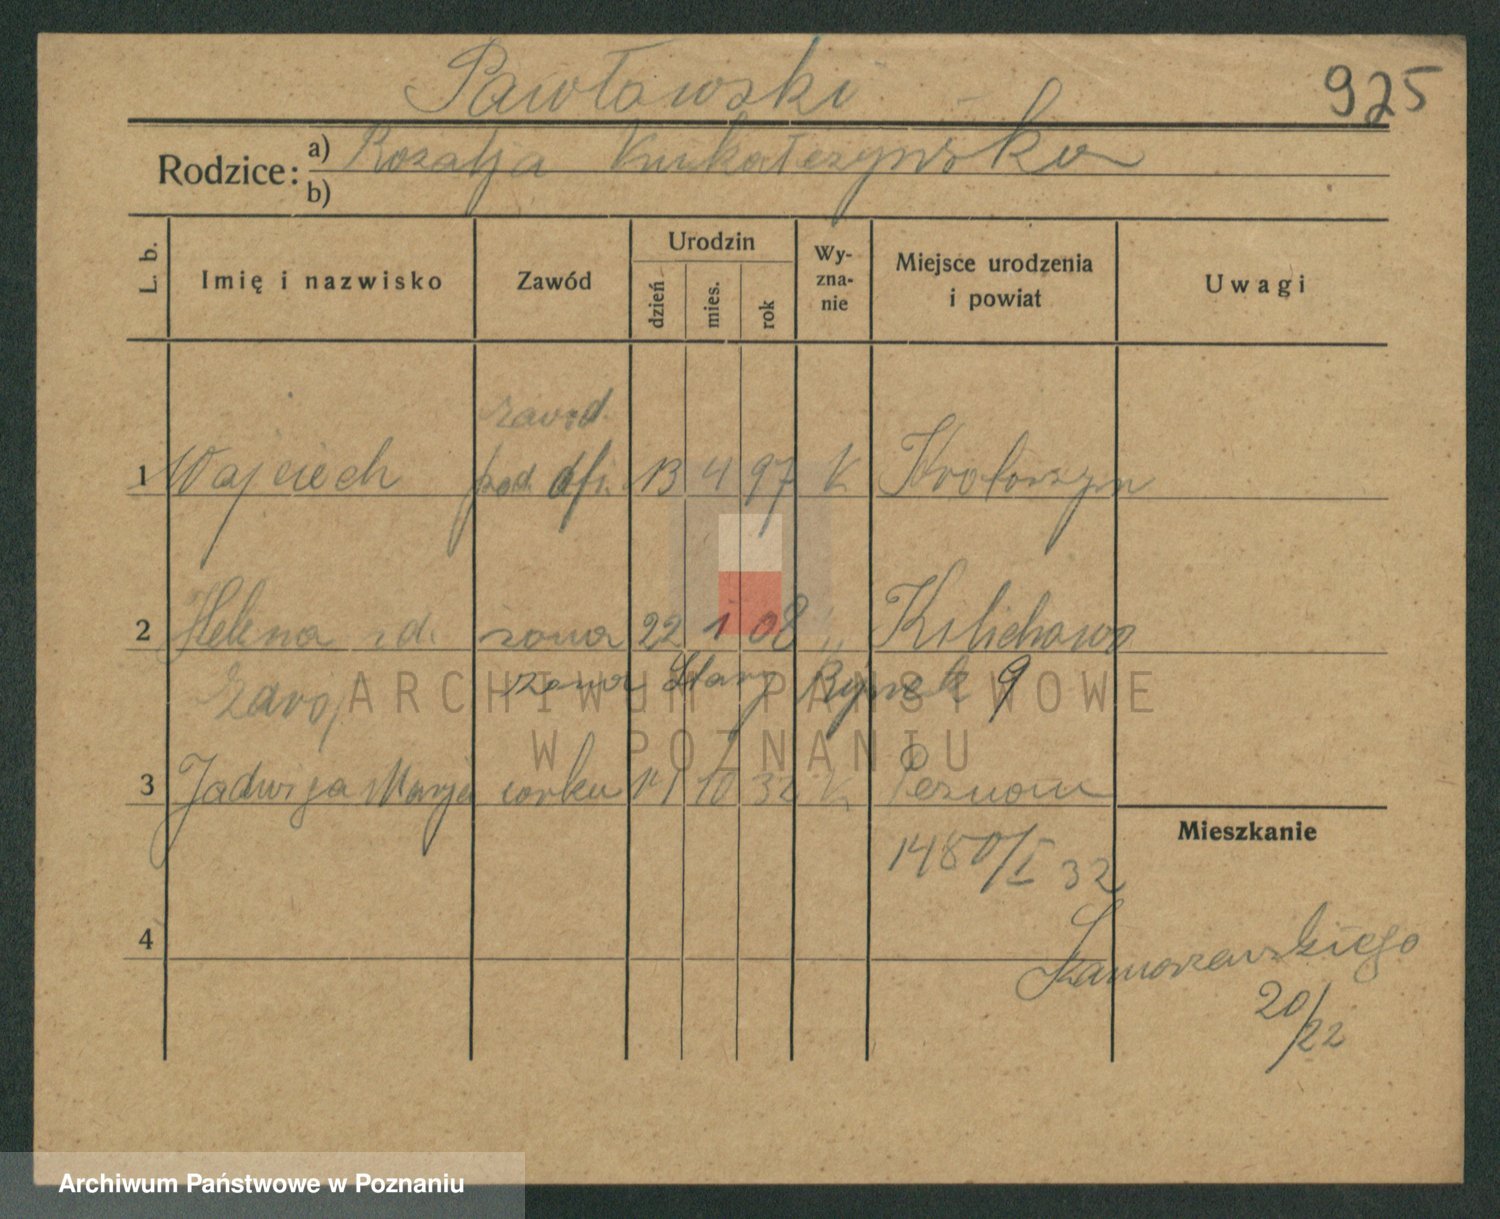 Pawłowski
925
Rodzice: a) Rozalja
b)
L. b. Imię i nazwisko Zawód Urodzin dzień mies. rok Wy-zna-nie Miejsce urodzenia i powiat Uwagi
zawod.
1 Wojciech pod. ofi. 13 4 97 K Krotoszyn
2 Helena zd. żona 22 1 08 " Kelichowo
Stary Rynek 9
3 Jadwiga Marja córka 10 32 K Poznań
Mieszkanie
1480/I 32
4
20/22
ARCHIWUM PAŃSTWOWE
W POZNANIU
Archiwum Państwowe w Poznaniu